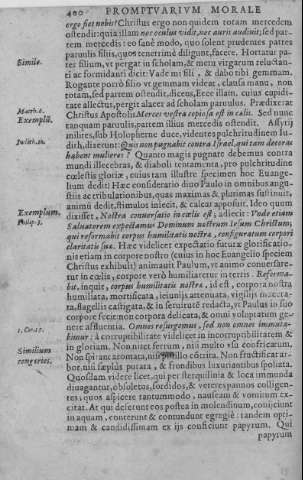 400 PROMPTVARIVM MORALE
ergo fiet nobis? Christus ergo non quidem totam mercedem
ostendit: quia illam nec oculus vidit, nec auris audiuit; sed par
tem mercedis: eo sanè modo, quo solent prudentes patres
paruulis filiis, quos tenerrimè diligunt, facere. Hortatur pa-
Simile.
ter filium, vt pergat in scholam, & metu virgarum reluctan-
ti ac formidanti dicit: Vade mi fili, & dabo tibi gemmam.
Rogante porrò filio vt gemmam videat, clausa manu, non
totam, sed partem ostendit, dicens, Ecce illam. cuius cupidi-
tate affectus, pergit alacer ad scholam paruulus. Prædixerat
Matth. 5.
Christus Apostolis: Merces vestra copiosa est in cælis. Sed nunc
Exemplũ.
tanquam paruulis, partem illius mercedis ostendit. Assyrij
milites, sub Holopherne duce, videntes pulchritudinem Iu-
Iudith. 10.
dith, dixerunt: Quis non pugnabit contra Israel, qui tam decoras
habent mulieres? Quanto magis pugnare debemus contra
mundi illecebras, & diaboli tentamenta, pro pulchritudine
cœlestis gloriæ, cuius tam illustre specimen hoc Euange-
lium dedit! Hæc consideratio diuo Paulo in omnibus angu-
stiis ac tribulationibus, quas maximas & plurimas sustinuit,
animũ dedit, stimulos iniecit, & calcar apposuit. Ideo quum
Exemplum.
dixisset, Nostra conuersatio in cœlis est; adiecit: Vnde etiam
Philip. 3.
Saluatorem expectamus Dominum nostrum Iesum Christum,
qui reformabit corpus humilitatis nostræ, configuratum corpori
claritatis suæ. Hæc videlicet expectatio futuræ glorificatio-
nis etiam in corpore nostro (cuius in hoc Euangelio specimen
Christus exhibuit) animauit Paulum, vt animo conuersare-
tur in cœlis, corpore verò humiliaretur in terris. Reforma-
bit, inquit, corpus humilitatis nostræ, id est, corpora nostra
humiliata, mortificata, ieiuniis attenuata, vigiliis macera-
ta, flagellis castigata, & in seruitutẽ redacta, vt Paulus in suo
corpore fecit: non corpora delicata, & omni voluptatum ge-
1. Cor. 15.
nere affluentia. Omnes resurgemus, sed non omnes immuta-
bimur: à corruptibilitate videlicet in incorruptibilitatem &
Similium
in gloriam. Non nitet ferrum, nisi multo vsu confricatum.
congeries.
Non spirant aromata, nisi pistillo cõtrita. Non fructificat ar-
bor, nisi sæpius putata, & frondibus luxuriantibus spoliata.
Quosdam videre licet, qui per sterquilinia & loca immunda
diuagantur, obsoletos, sordidos, & veteres pannos colligen-
tes; quos aspicere tantummodo, nauseam & vomitum ex-
citat. At qui deferunt eos postea in molendinum, coniiciunt
in aquam, conterunt & contundunt egregiè: tandem opti-
mam & candidissimam ex iis conficiunt papyrum. Qui
papyrum